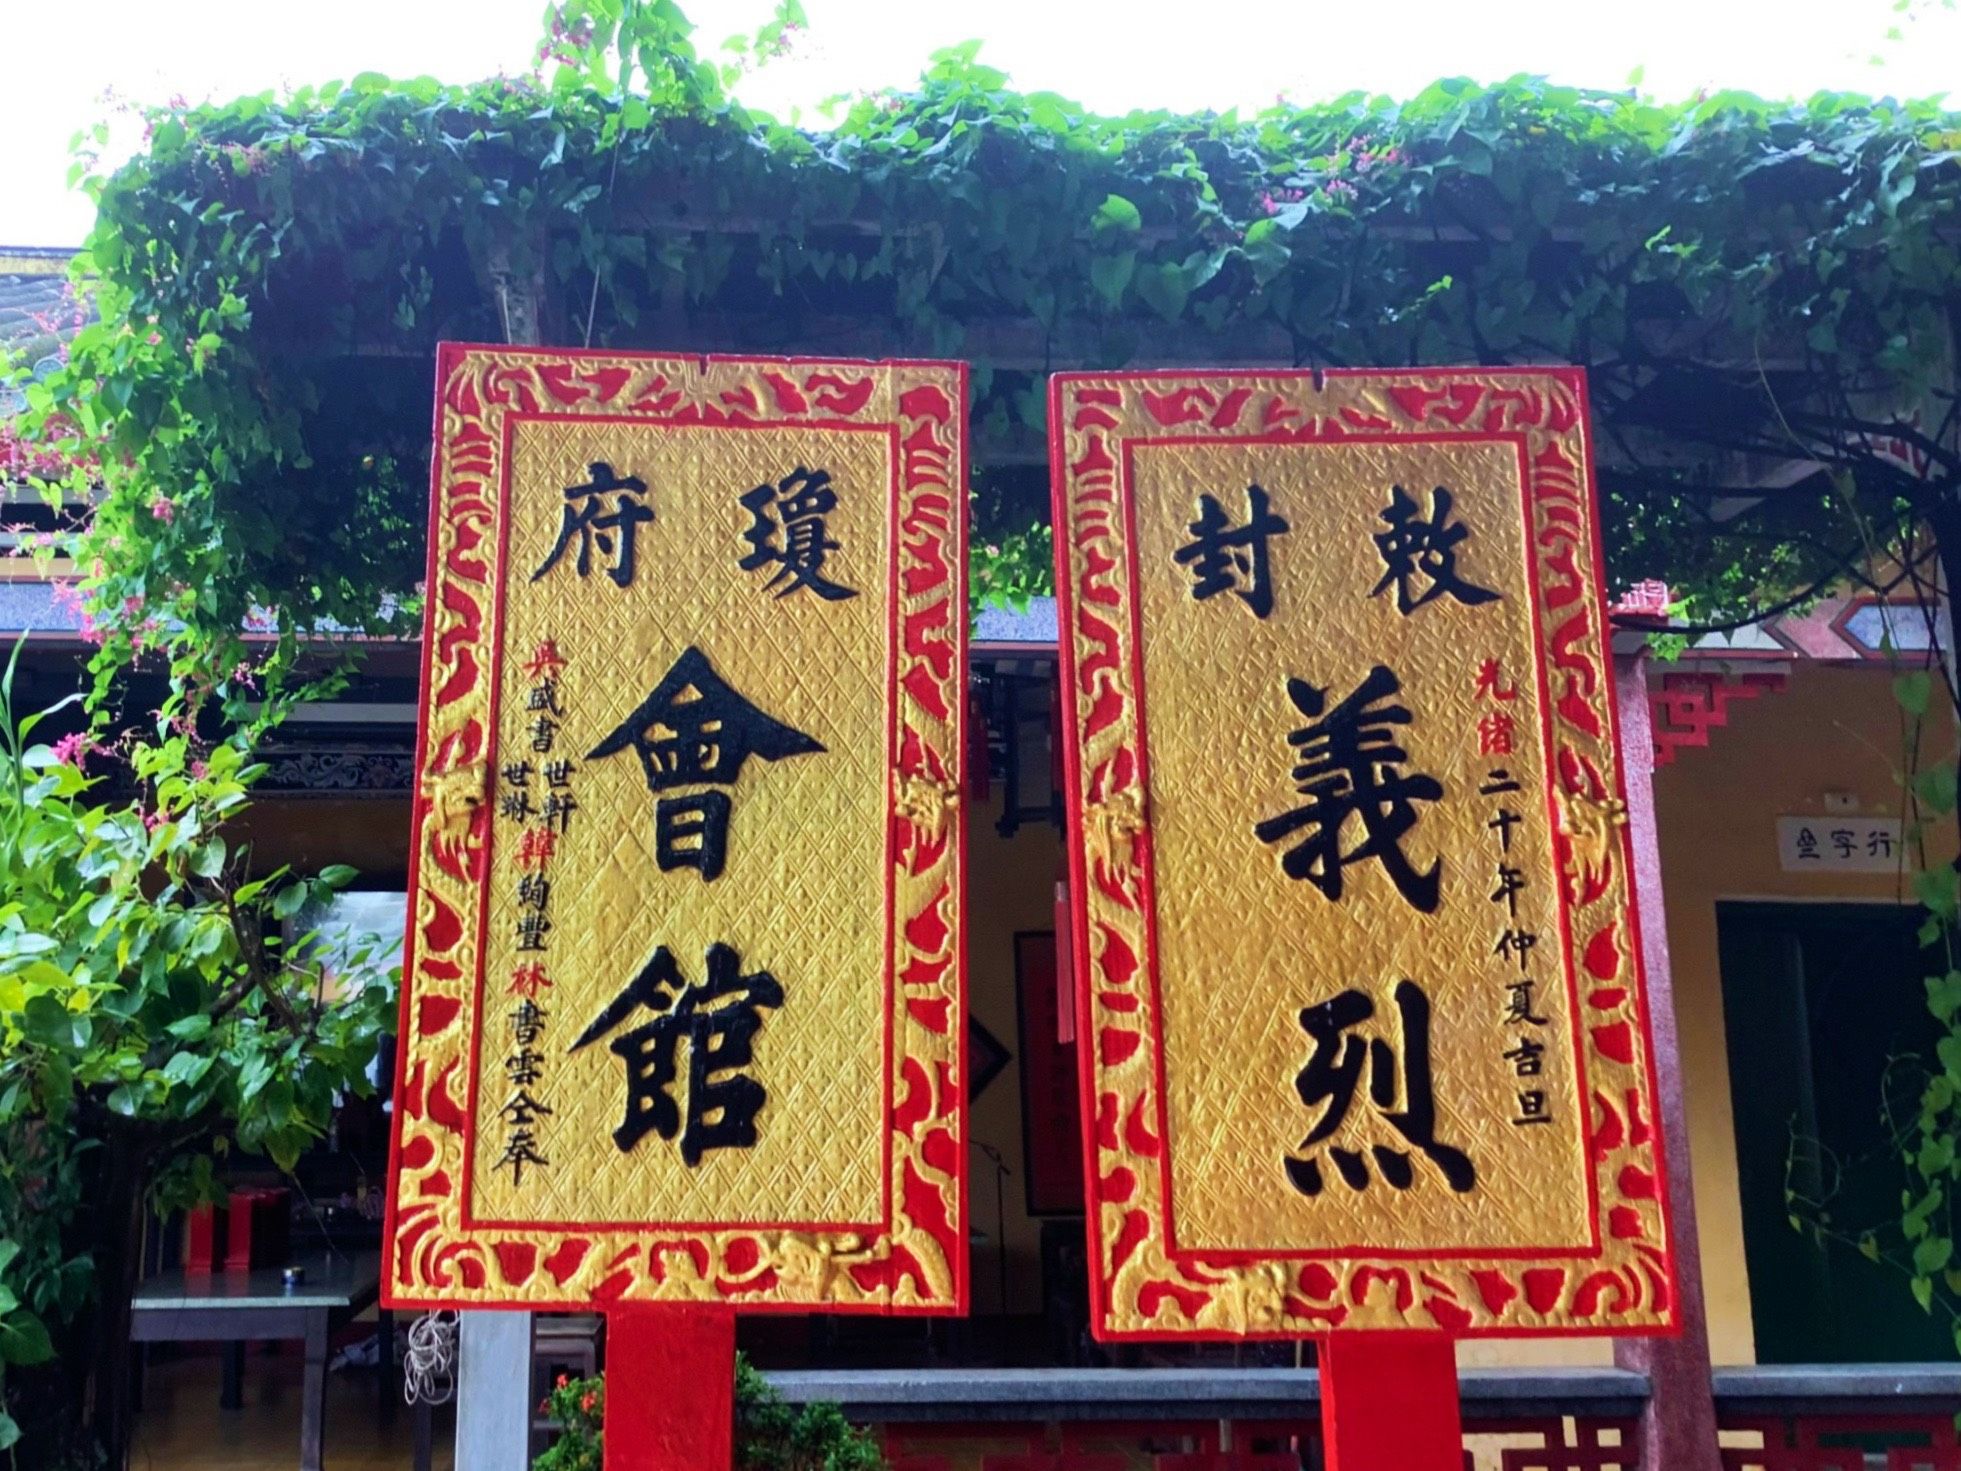 敕封
義烈
光緒二十年仲夏吉旦
瓊府
會館
吳盛書世軒世琳韓鉤豐林書雲仝奉
行字